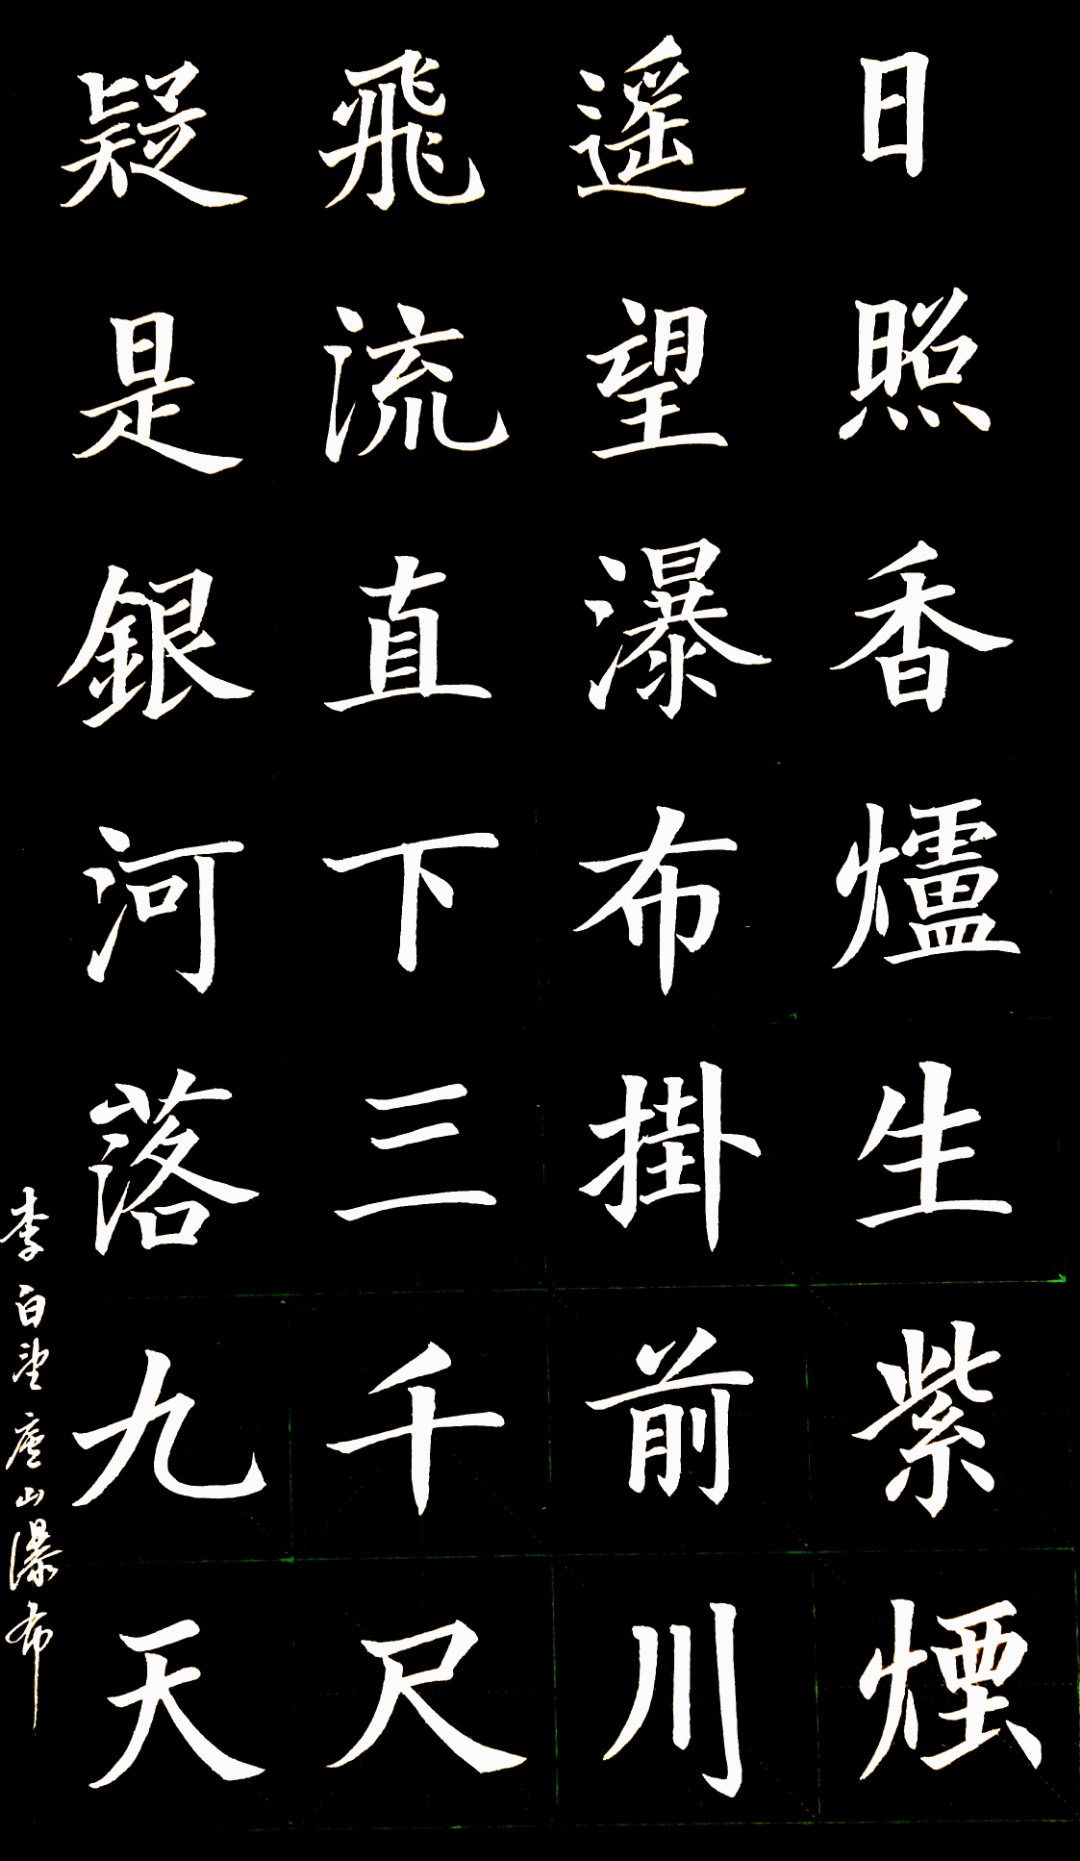 日照香爐生紫煙
遥望瀑布掛前川
飛流直下三千尺
疑是銀河落九天
李白望廬山瀑布